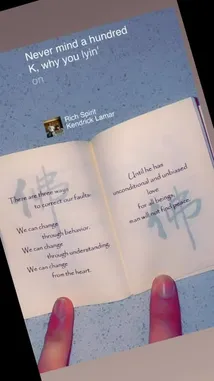 Never mind a hundred
K, why you lyin'
on
Rich Spirit
Kendrick Lamar
There are three ways
to correct our faults.
We can change
through behavior.
We can change
through understanding.
We can change
from the heart.
Until he has
unconditional and unbiased
love
for all beings,
man will not find peace.
佛
佛